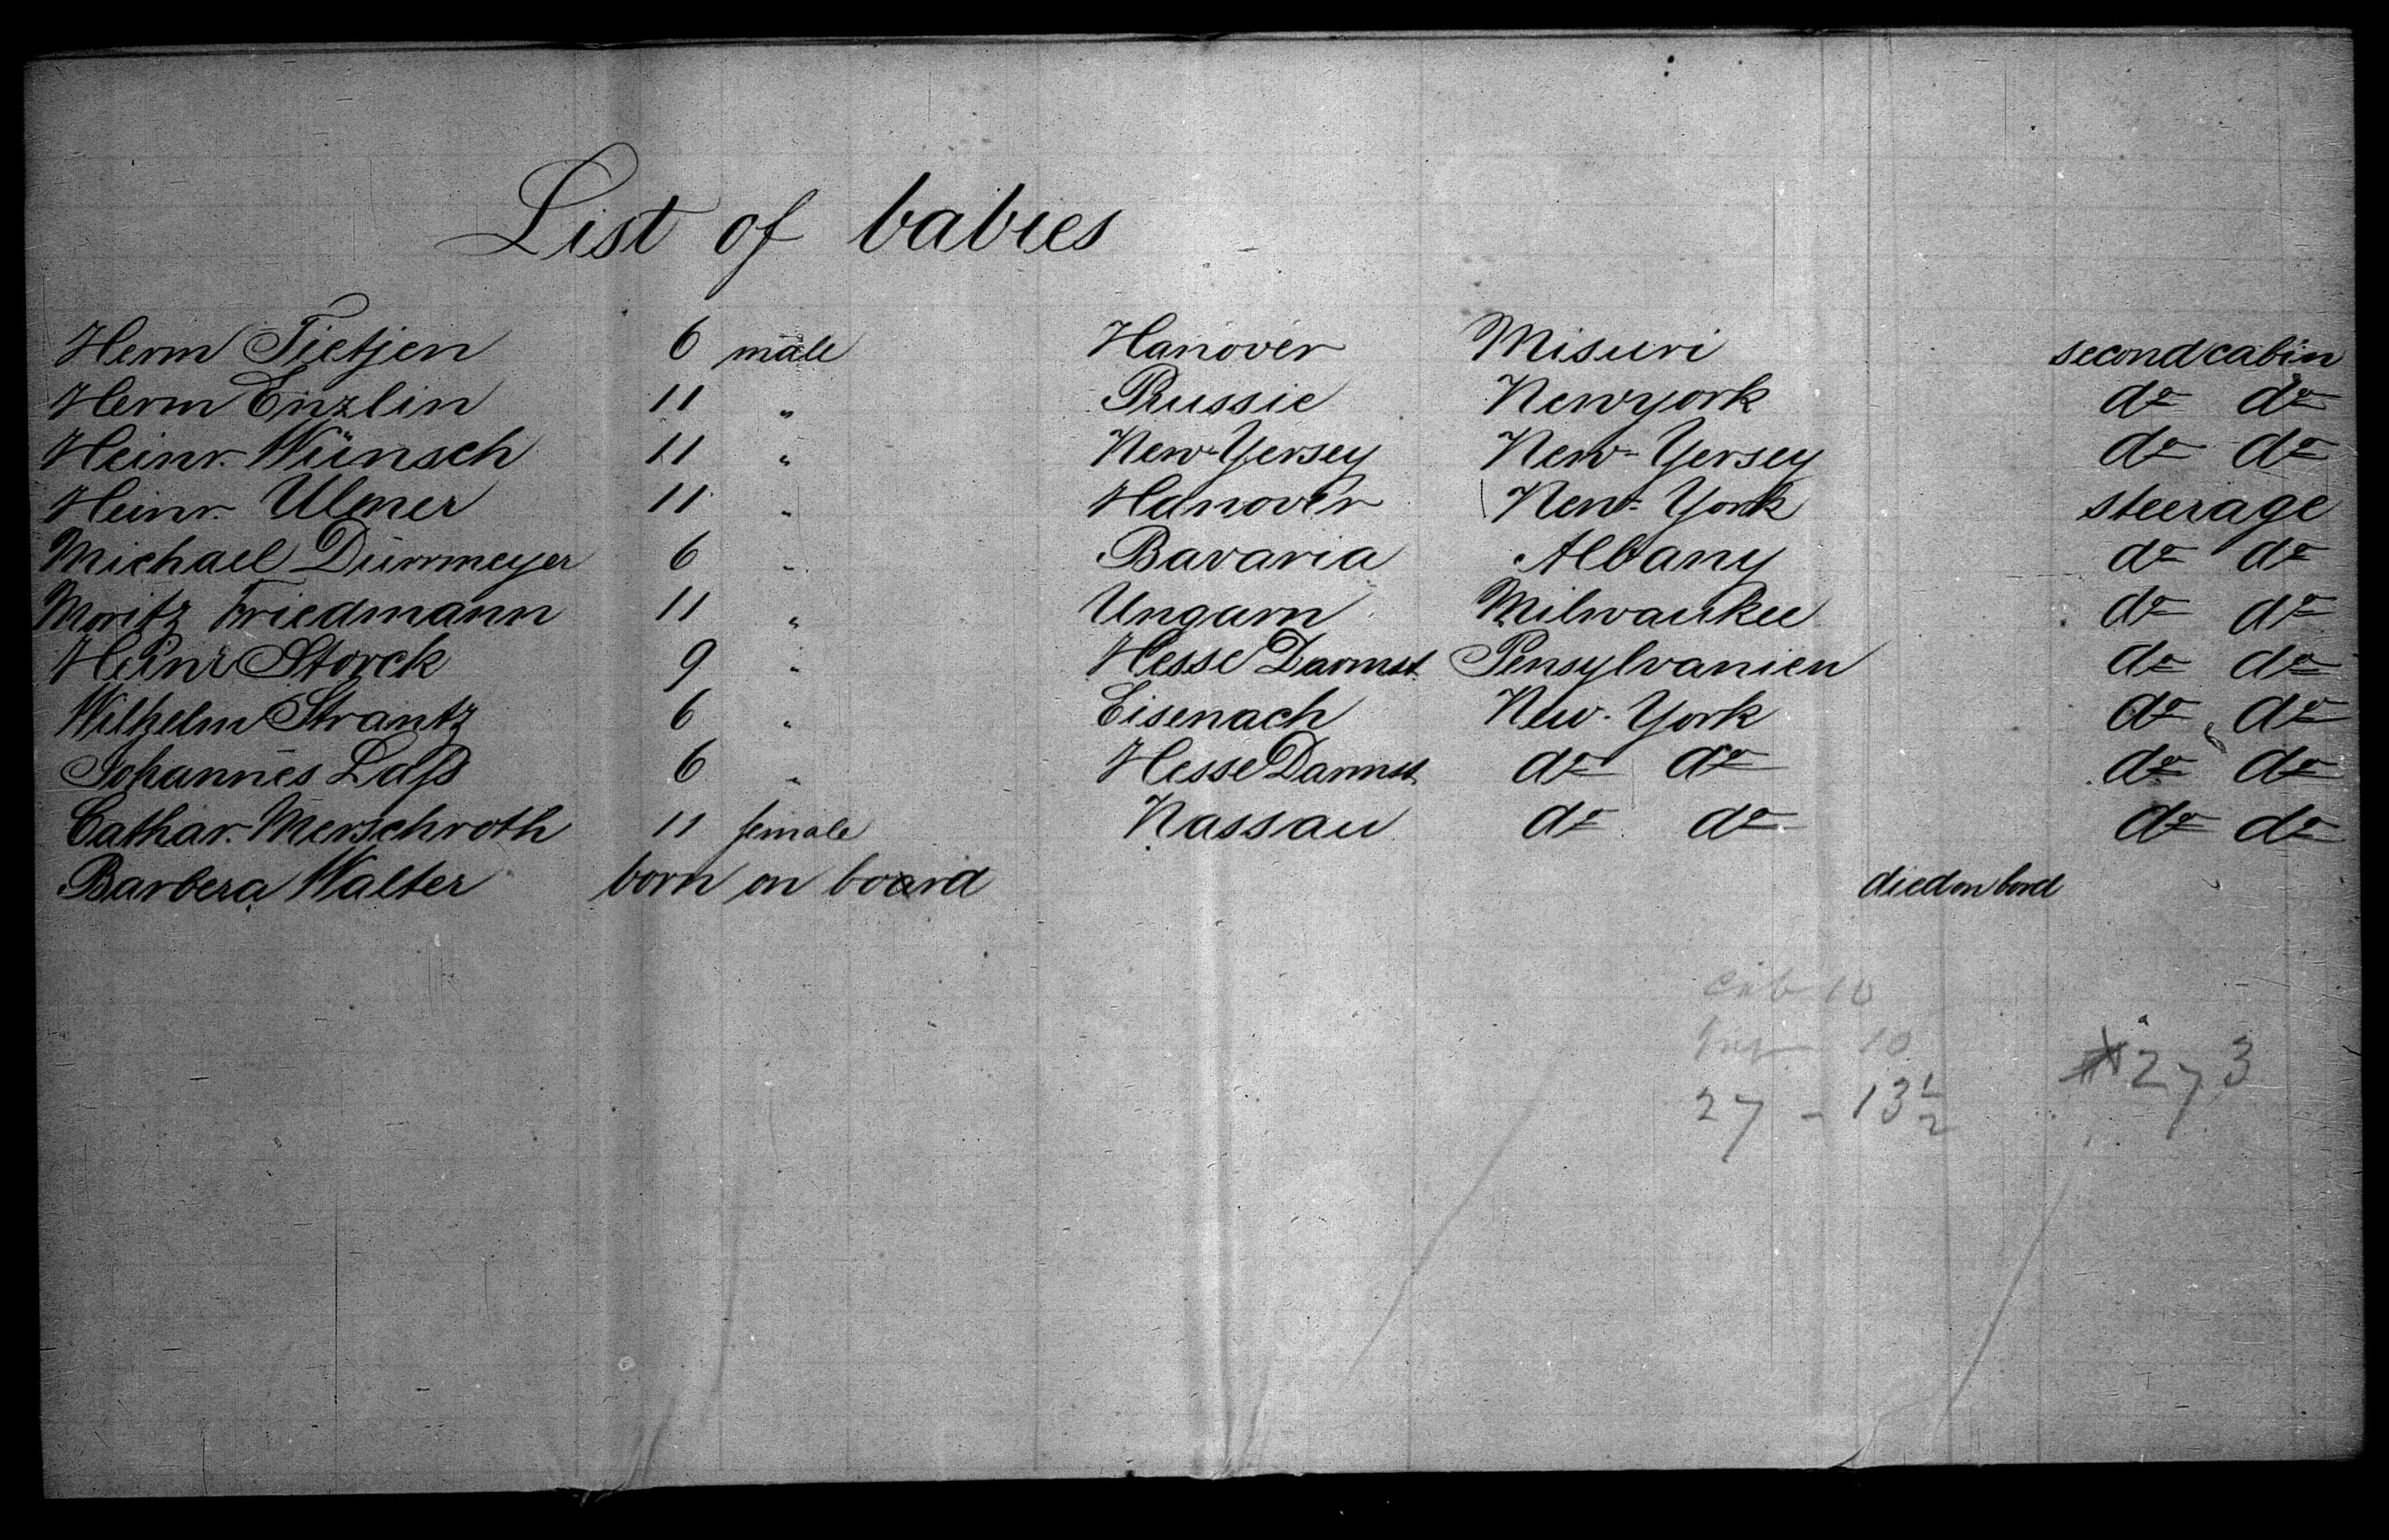 List of babies
Herm Tietjen 6 male Hanover Misuri second cabin
Herm Enzlin 11 " Prussie Newyork do do
Heinr. Wünsch 11 " New-Yersey New-Yersey do do
Heinr. Ulmer 11 " Hanover New-York steerage
Michael Dürrmeyer 6 " Bavaria Albany do do
Moritz Friedmann 11 " Ungarn Milwaukee do do
Heinr Storck 9 " Hesse Darmst Pensylvanien do do
Wilhelm Strantz 6 " Eisenach New-York do do
Johannes Laß 6 " Hesse Darmst do do do do
Cathar. Merschroth 11 female Nassau do do do do
Barbera Walter born on board died on bord
cab 10
10
273
27 - 13 1/2